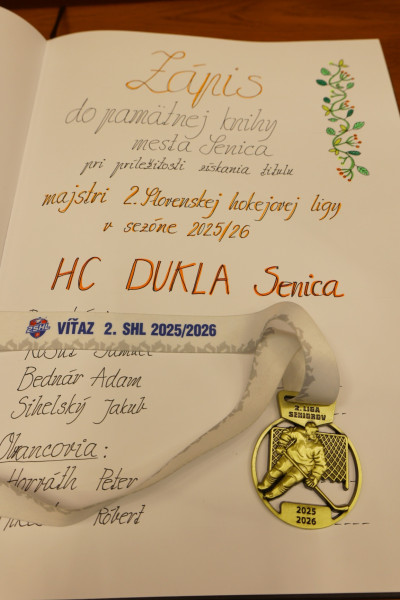 Zápis
do pamätnej knihy
mesta Senica
pri príležitosti získania titulu
majstri 2. Slovenskej hokejovej ligy
v sezóne 2025/26
HC DUKLA Senica
2SHL VÍŤAZ 2. SHL 2025/2026
Samuel
Bednár Adam
Sihelský Jakub
Obrancovia:
Horváth Peter
Róbert
2. LIGA
SENIOROV
2025
2026